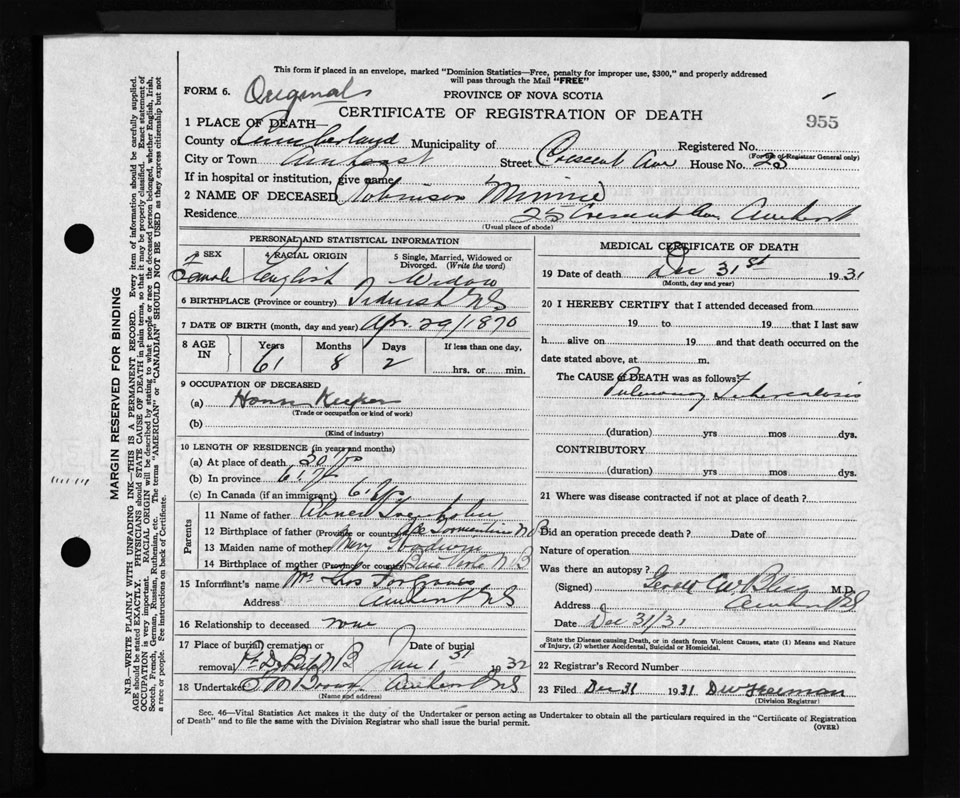 This form if placed in an envelope, marked "Dominion Statistics—Free, penalty for improper use, $300," and properly addressed
will pass through the Mail "FREE"
FORM 6. Original
PROVINCE OF NOVA SCOTIA
CERTIFICATE OF REGISTRATION OF DEATH
955
1 PLACE OF DEATH—
County of Cumberland Municipality of Registered No.
(For use of Registrar General only)
City or Town Amherst Street Crescent Ave House No. 25
If in hospital or institution, give name
2 NAME OF DECEASED Robinson Minnie
Residence 25 Crescent Ave Amherst
(Usual place of abode)
PERSONAL AND STATISTICAL INFORMATION
3 SEX 4 RACIAL ORIGIN 5 Single, Married, Widowed or Divorced. (Write the word)
Female English Widow
6 BIRTHPLACE (Province or country) Tidnish NS
7 DATE OF BIRTH (month, day and year) Apr. 29/1870
8 AGE IN Years Months Days If less than one day,
61 8 2 hrs. or min.
9 OCCUPATION OF DECEASED
(a) House Keeper
(Trade or occupation or kind of work)
(b)
(Kind of industry)
10 LENGTH OF RESIDENCE (in years and months)
(a) At place of death 30
(b) In province 61
(c) In Canada (if an immigrant) 61
Parents
11 Name of father Abner
12 Birthplace of father (Province or country) Cape Tormentine N B
13 Maiden name of mother Mary
14 Birthplace of mother (Province or country) Baie Verte N B
15 Informant's name Mrs
Address Amherst NS
16 Relationship to deceased none
17 Place of burial, cremation or removal N B Date of burial Jan 1 31 1932
18 Undertaker Amherst NS
(Name and address)
MEDICAL CERTIFICATE OF DEATH
19 Date of death Dec 31st 1931
(Month, day and year)
20 I HEREBY CERTIFY that I attended deceased from
19 to 19, that I last saw
h alive on 19 and that death occurred on the
date stated above, at m.
The CAUSE OF DEATH was as follows:
Pulmonary Tuberculosis
(duration) yrs mos dys.
CONTRIBUTORY
(duration) yrs mos dys.
21 Where was disease contracted if not at place of death?
Did an operation precede death? Date of
Nature of operation
Was there an autopsy?
(Signed) M.D.
Address Amherst NS
Date Dec 31/31
State the Disease causing Death, or in death from Violent Causes, state (1) Means and Nature
of Injury, (2) whether Accidental, Suicidal or Homicidal.
22 Registrar's Record Number
23 Filed Dec 31 1931
(Division Registrar)
Sec. 46—Vital Statistics Act makes it the duty of the Undertaker or person acting as Undertaker to obtain all the particulars required in the "Certificate of Registration
of Death" and to file the same with the Division Registrar who shall issue the burial permit.
(OVER)
MARGIN RESERVED FOR BINDING
N.B.—WRITE PLAINLY WITH UNFADING INK—THIS IS A PERMANENT RECORD. Every item of information should be carefully supplied.
AGE should be stated EXACTLY. PHYSICIANS should STATE CAUSE OF DEATH in plain terms, so that it may be properly classified. Exact statement of
OCCUPATION is very important. RACIAL ORIGIN will be described by stating to what people or race the deceased person belonged, whether English, Irish,
Scotch, French, German, Russian, Ruthenian, etc. The terms "AMERICAN" or "CANADIAN" SHOULD NOT BE USED as they express citizenship but not
a race or people. See instructions on back of Certificate.